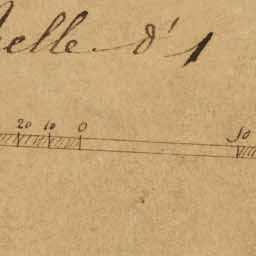 elle d' 1
20 10 0 50